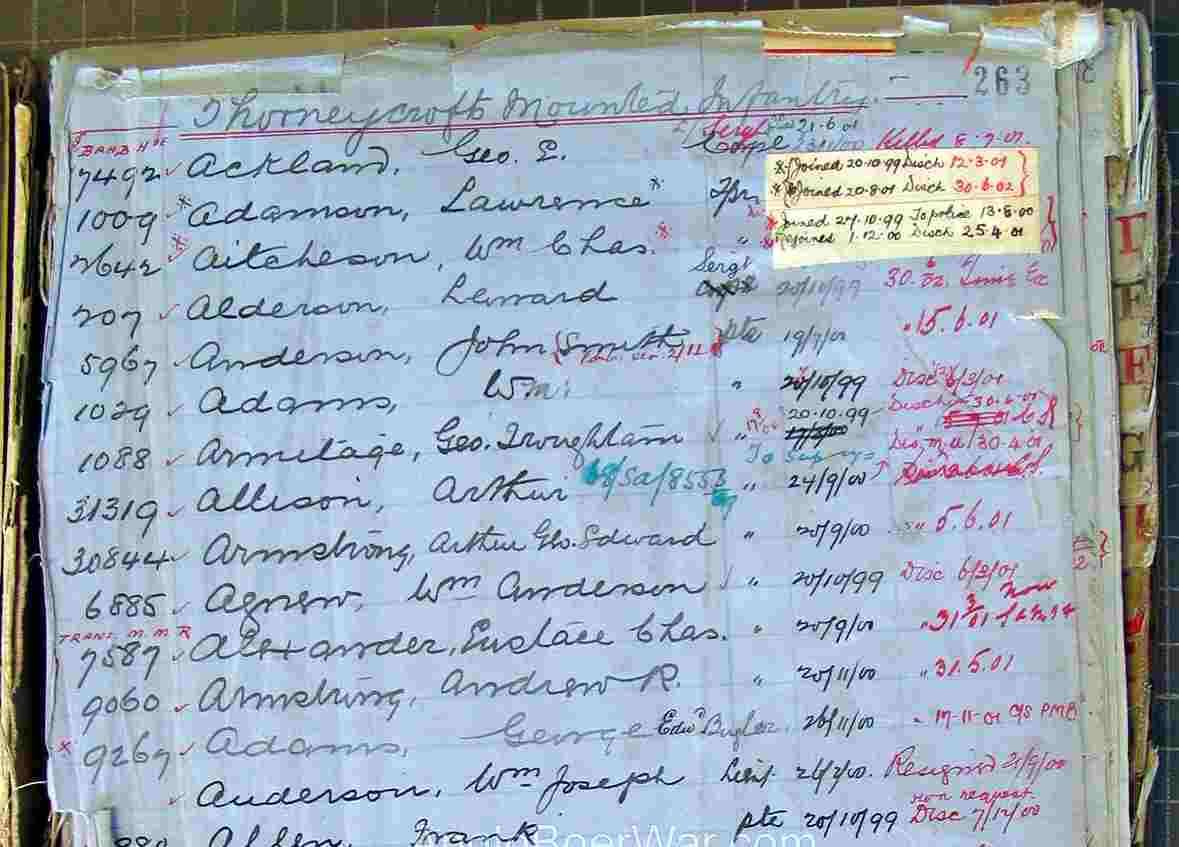 Thorneycrofts Mounted Infantry. 263
7492 Ackland, Geo. E. Sergt 21.6.01 Killed
Joined 20.10.99 Disch 12-3-01
Joined 20.8.01 Disch 30.6.02
1009 Adamson, Lawrence
Joined 27.10.99 To police 13.8.00
Rejoined 1.12.00 Disch 25.4.01
2642 Aitcheson, Wm Chas. "
207 Alderson, Lennard Sergt 20/10/99 30.6/02
5967 Anderson, John Smith pte 19/7/00 " 15.6.01
1029 Adams, Wm. " 20/10/99 Disc 6/3/01
1088 Armitage, Geo. Troughtam " 20.10.99 Disch 30.6.01
31319 Allison, Arthur 68/Sa/8553 " 24/9/00 Dis. M.U. 30.4.01
30844 Armstrong, Arthur Geo. Edward " 20/9/00 " 5.6.01
6885 Agnew, Wm Anderson " 20/10/99 Disc 6/3/01
TRANS. M.M.R
7587 Alexander, Eustace Chas. " 20/9/00 " 31/3/01
9060 Armstrong, Andrew R. " 20/11/00 " 31.5.01
9267 Adams, George Edwd Bugler. 26/11/00 " 17-11-01 C/S PMB
Anderson, Wm Joseph Lieut. 26/2/00. Resigned 21/9/00
own request
Allen Frank pte 20/10/99 Disc 7/12/00
BoerWar.com